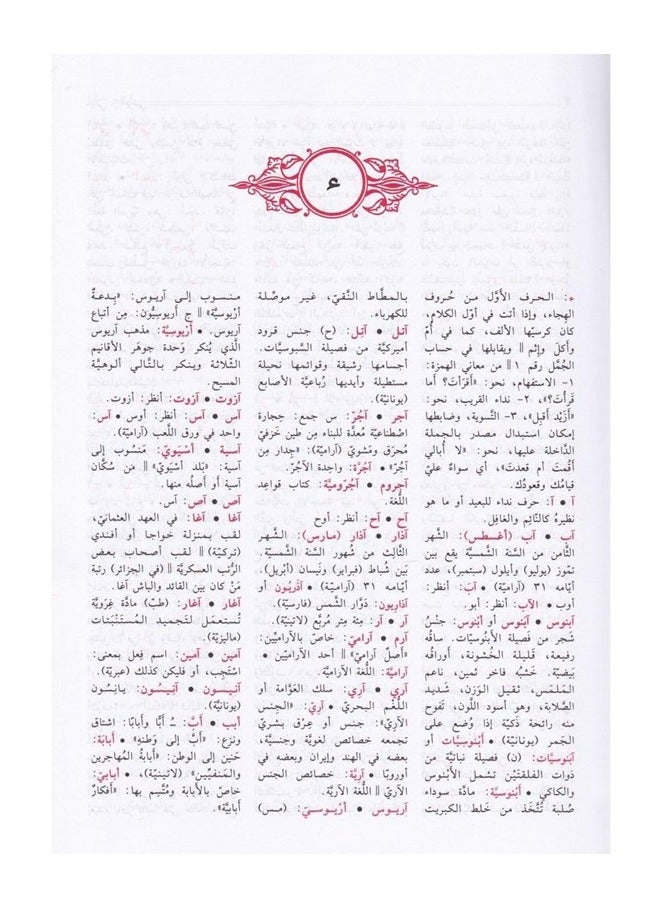 ء
ء: الحرف الأوَّل من حُروف
الهِجاء، وإذا أتت في أوّل الكلام،
كان كرسيّها الألف، كما في أُمّ
وأكلَ وإثم || ويقابلها في حساب
الجُمَّل رقم ١ || من معاني الهمزة:
١- الاستفهام، نحو: «أقرَأتَ؟ أما
قرأت؟»، ٢- نداء القريب، نحو:
«أزَيْد أقبِل»، ٣- التَّسوية، وضابطها
إمكان استبدال مصدر بالجملة
الدَّاخلة عليها، نحو: «لا أُبالي
أقُمتَ أم قعدتَ»، أي سواءٌ عليّ
قيامُك وقعودُك.
آ • آ: حرف نداء للبعيد أو ما هو
نظيرُه كالنَّائِم والغافِل.
آب • آب (أغسطس): الشَّهر
الثَّامن من السَّنة الشَّمسيَّة يقع بين
تمّوز (يوليو) وأيلول (سبتمبر)، عدد
أيّامه ٣١ (آراميّة) • آبَ: أنظر:
أوب • الآب: أنظر: أبو.
آبنوس • آبَنُوس أو أَبْنُوس: جنْسُ
شجر من فَصيلة الأبَنُوسيّات. ساقُه
رفيعة، قَليلة الخُشونة، أوراقُه
بَيضيّة. خَشبُه فاخر ثَمين، ناعم
المَلمَس، ثَقيل الوَزن، شَديد
الصَّلابة، وهو أسود اللَّون، تَفوح
منه رائحة ذَكيّة إذا وُضع على
الجَمر (يونانيّة) • أَبنُوسيَّات أو
آبَنُوسيَّات: (ن) فصيلة نباتيَّة من
ذوات الفلقتَيْن تشمل الأبْنُوس
والكاكي • أَبْنُوسيّة: مادّة سوداء
صلبة تُتّخذ من خَلط الكبريت
بالمطَّاط النَّقيّ، غير موصّلة
للكهرباء.
آتل • آتِل: (ح) جنس قرود
أميركيَّة من فصيلة السَّبوسيَّات.
أجسامها رشيقة وقوائمها نحيلة
مستطيلة وأيديها رُباعيَّة الأصابع
(يونانيّة).
آجر • آجُرّ: س جمع: حِجارة
اصْطناعيَّة مُعدَّة للبناء مِن طين خَزَفيّ
مُحرَق ومَشويّ (آراميّة): «جِدار مِن
آجُرّ» • آجُرَّة: واحدة الآجُرّ.
آجروم • آجُرّوميَّة: كتاب قَواعِد
اللُّغة.
آح • آح: أنظر: أوح
آذار • آذار (مارس): الشَّهر
الثَّالث من شُهور السَّنة الشَّمسيَّة.
بَين شُباط (فبراير) ونَيسان (أبْريل).
أيّامه ٣١ (آراميّة) • آذَريُون أو
آذاريون: دَوّار الشَّمس (فارسيّة).
آر • آر: مِئة مِتر مُربَّع (لاتينيّة).
آرم • آرامي: خاصّ بالآراميِّين:
«أصلٌ آراميّ» || أحد الآراميِّين •
آراميَّة: اللُّغة الآراميَّة.
آري • آري: سلك العَوَّامة أو
اللُّغم البحريّ • آريّ: «الجِنس
الآريّ»: جنس أو عِرْق بشريّ
تجمعه خصائص لغويَّة وجنسيَّة،
بعضه في الهند وإيران وبعضه في
أوروبّا • آريَّة: خصائص الجنس
الآريّ || اللُّغة الآريَّة.
آريوس • أَرْيوسيّ: (مس)
منسوب إلى آريوس: «بِدعةٌ
أَرْيوسيَّة» || ج أَريوسيُّون: مِن أتباع
آريوس. • أَرْيوسيَّة: مذهب آريوس
الَّذي يُنكر وَحدة جوهر الأقانيم
الثَّلاثة وينكر بالتَّالي ألوهيَّة
المسيح.
آزوت • آزوت: أنظر: أزوت.
آس • آسَ: أنظر: أوس • آس:
واحد في ورق اللَّعب (آراميّة).
آسية • أَسْيَويّ: مَنسُوب إلى
آسية: «بَلَد أسْيَويّ» || من سُكّان
آسية أو أصلُه منها.
آص • آص: آس.
آغا • آغا: في العهد العثمانيّ،
لقب بمنزلة خواجا أو أفندي
(تركيّة) || لقب أصحاب بعض
الرُّتب العسكريَّة || (في الجزائر) رتبة
مَنْ كان بين القائد والباش آغا.
آغار • آغار: (طب) مادَّة غِرَويَّة
تُستعمَل لتجميد المُستَنْبَتات
(ماليزيّة).
آمين • آمين: اسم فِعل بمعنى:
اسْتَجِب، أو فليكن كذلك (عبريّة).
آنيسون • آنيسُون: يانِسُون
(يونانيّة).
أبب • أبَّ: ـُ أبًّا وأبابًا: اشتاق
ونزع: «أبَّ إلى وَطنِهِ» • أبابَة:
حَنين إلى الوطن: «أبابةُ المُهاجرين
والمَنفيِّين» (لاتينيّة)، • أبابيّ:
خاصّ بالأبابة ومُتَّسِم بها: «أفكارٌ
أبابيَّة».